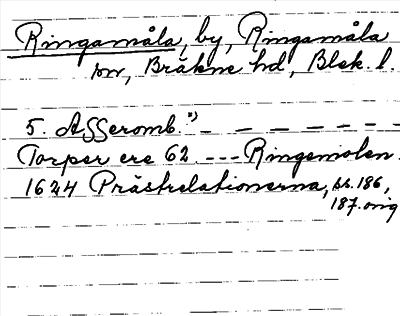 Ringamåla, by, Ringamåla
sn, Bräkne hd, Blek. l.
5. Asseromb. *) _ _ _ _ _ _ _
Torper ere 62 --- Ringemolen.
1624 Prästrelationerna, ss. 186,
187. orig